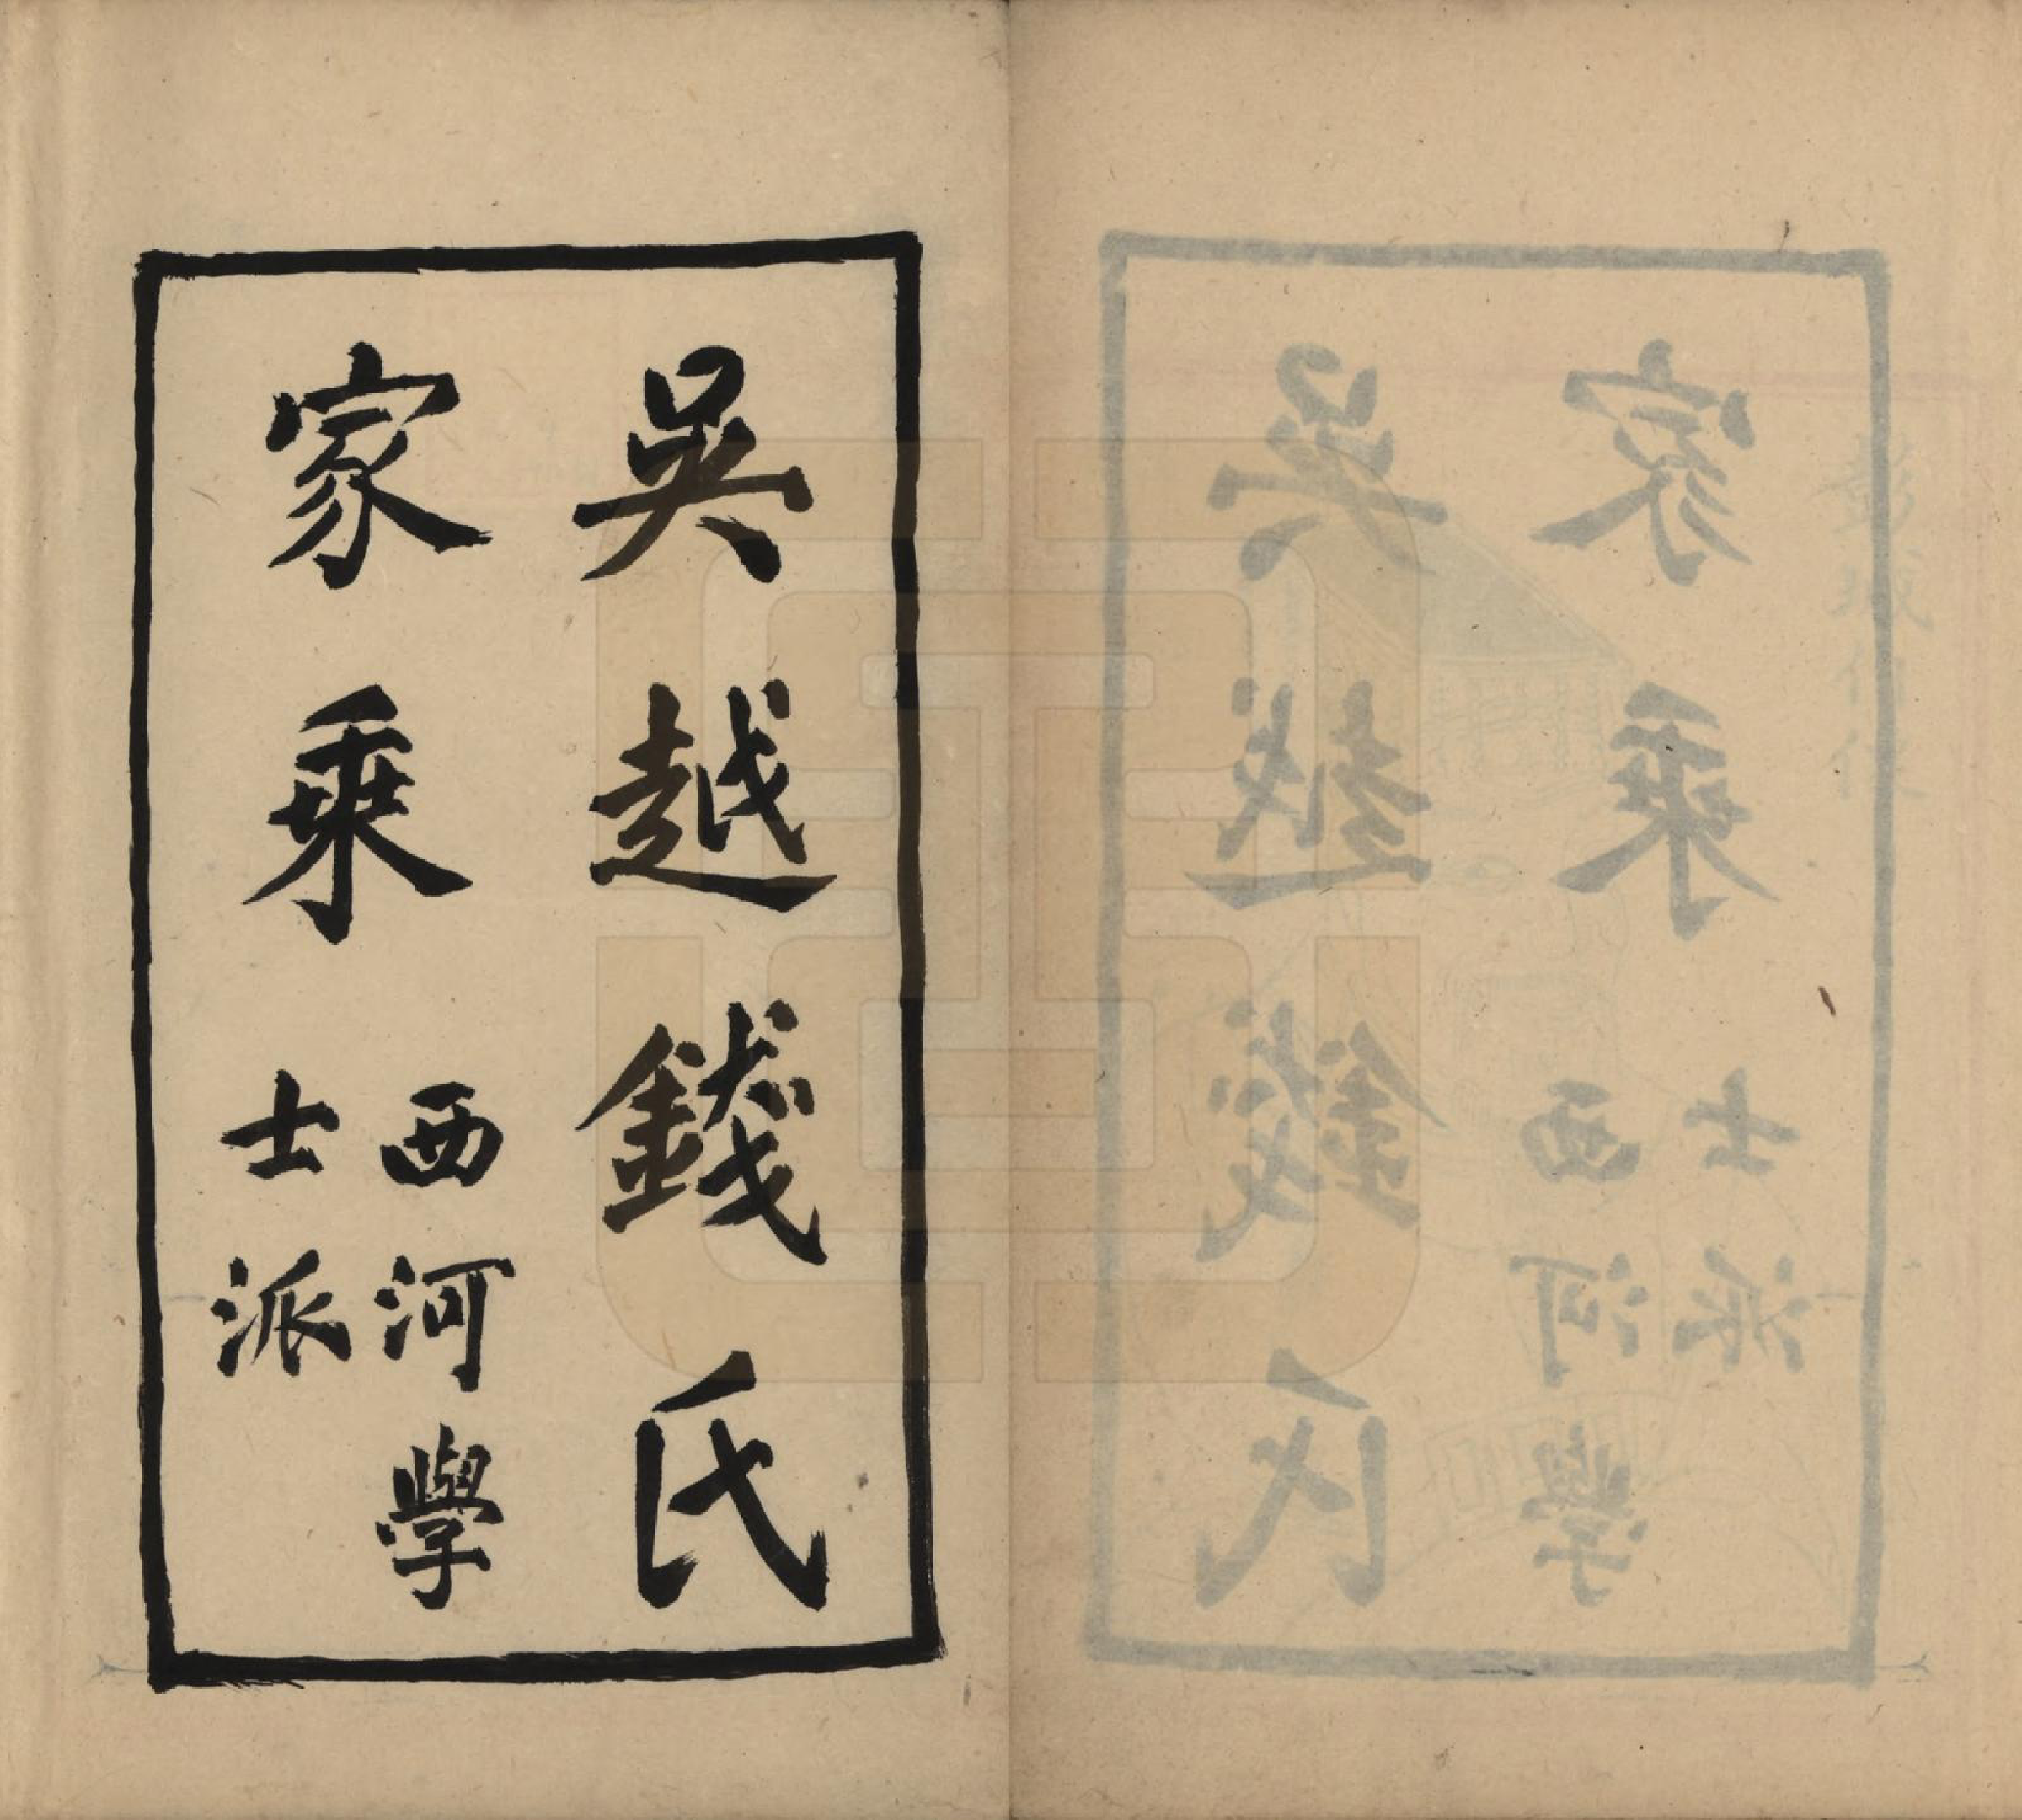 吳越錢氏
家乘
西河學
士派